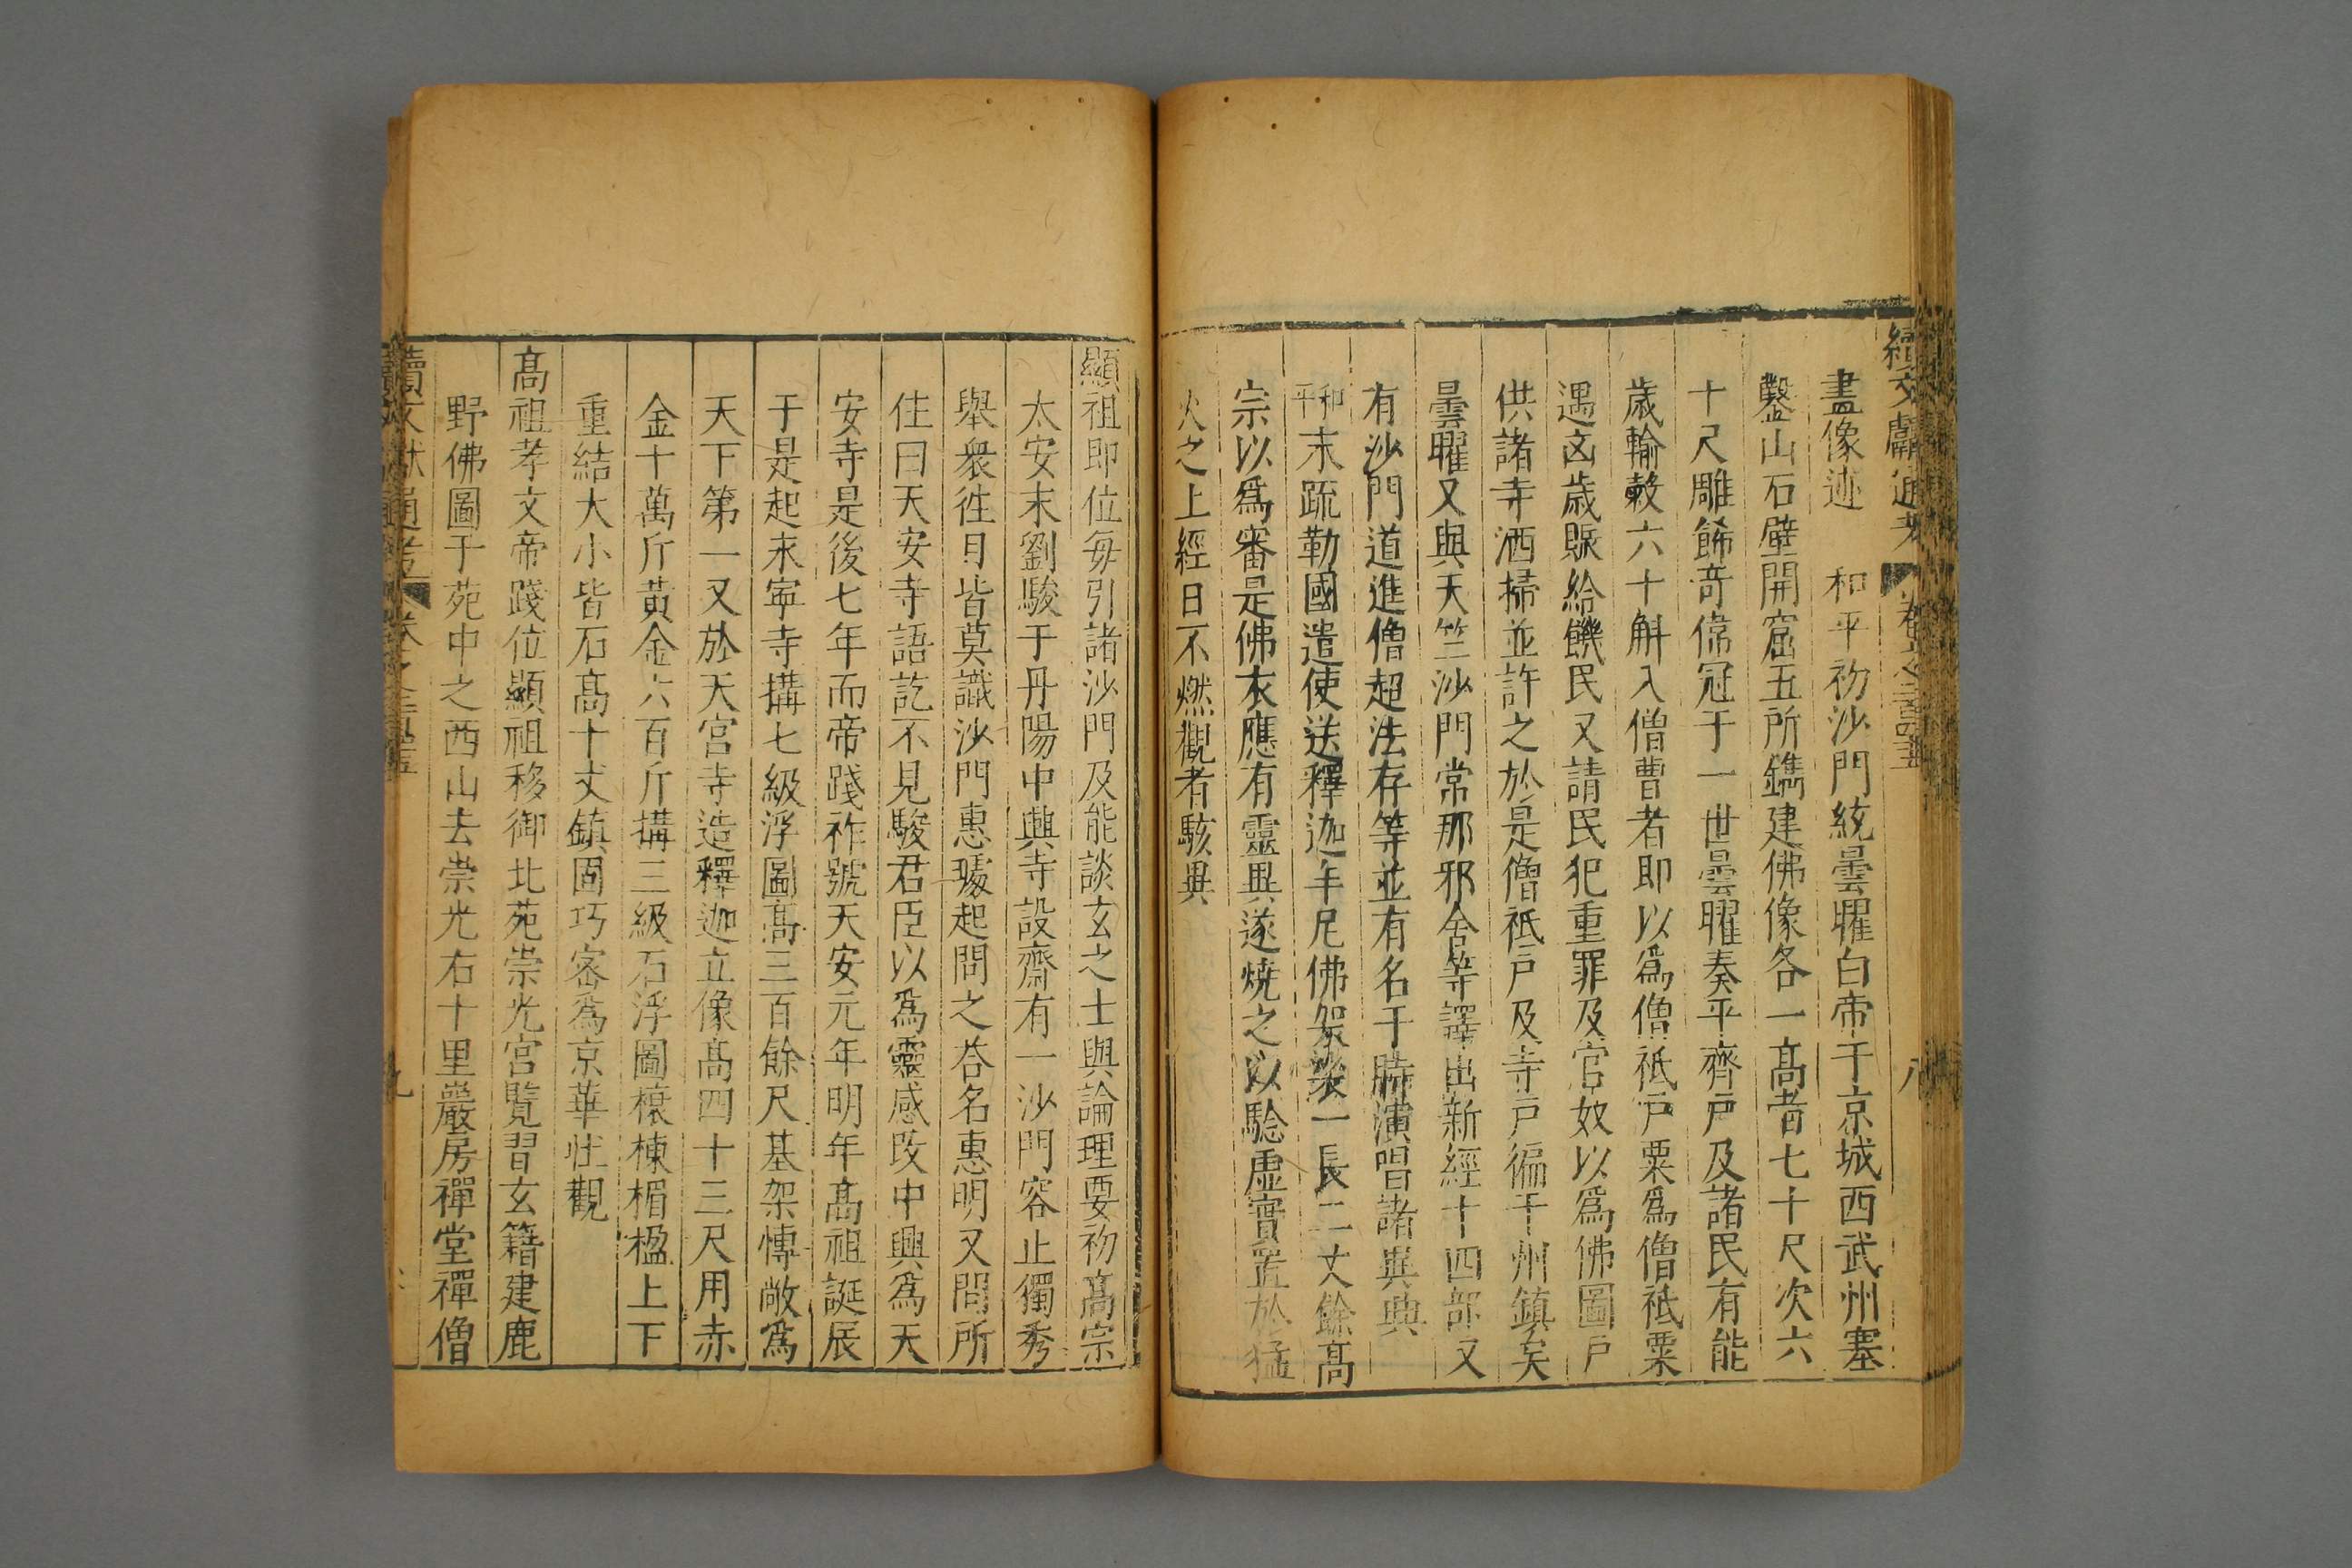 續文獻通考
八
畫像迹　和平初沙門統曇曜白帝于京城西武州塞
鑿山石壁開窟五所鐫建佛像各一高者七十尺次六
十尺雕餙奇偉冠于一世曇曜奏平齊戶及諸民有能
歲輸穀六十斛入僧曹者即以爲僧祇戶粟爲僧祇粟
遇凶歲賑給饑民又請民犯重罪及官奴以爲佛圖戶
供諸寺洒掃並許之於是僧祇戶及寺戶徧于州鎮矣
曇曜又與天竺沙門常那邪舍等譯出新經十四部又
有沙門道進僧超法存等並有名于時演唱諸異典
和平末疏勒國遣使送釋迦牟尼佛袈裟一長二丈餘高
宗以爲審是佛衣應有靈異遂燒之以騐虛實置於猛
火之上經日不燃觀者駭異
顯祖即位每引諸沙門及能談玄之士與論理要初高宗
太安末劉駿于丹陽中興寺設齋有一沙門容止獨秀
舉衆徃日皆莫識沙門惠璩起問之荅名惠明又問所
住曰天安寺語訖不見駿君臣以爲靈感改中興爲天
安寺是後七年而帝踐祚號天安元年明年高祖誕辰
于是起永寧寺搆七級浮圖高三百餘尺基架愽敞爲
天下第一又於天宮寺造釋迦立像高四十三尺用赤
金十萬斤黃金六百斤搆三級石浮圖榱棟楣楹上下
重結大小皆石高十丈鎮固巧密爲京華壯觀
高祖孝文帝踐位顯祖移御北苑崇光宮覽習玄籍建鹿
野佛圖于苑中之西山去崇光右十里巖房禪堂禪僧
續文獻通考
九